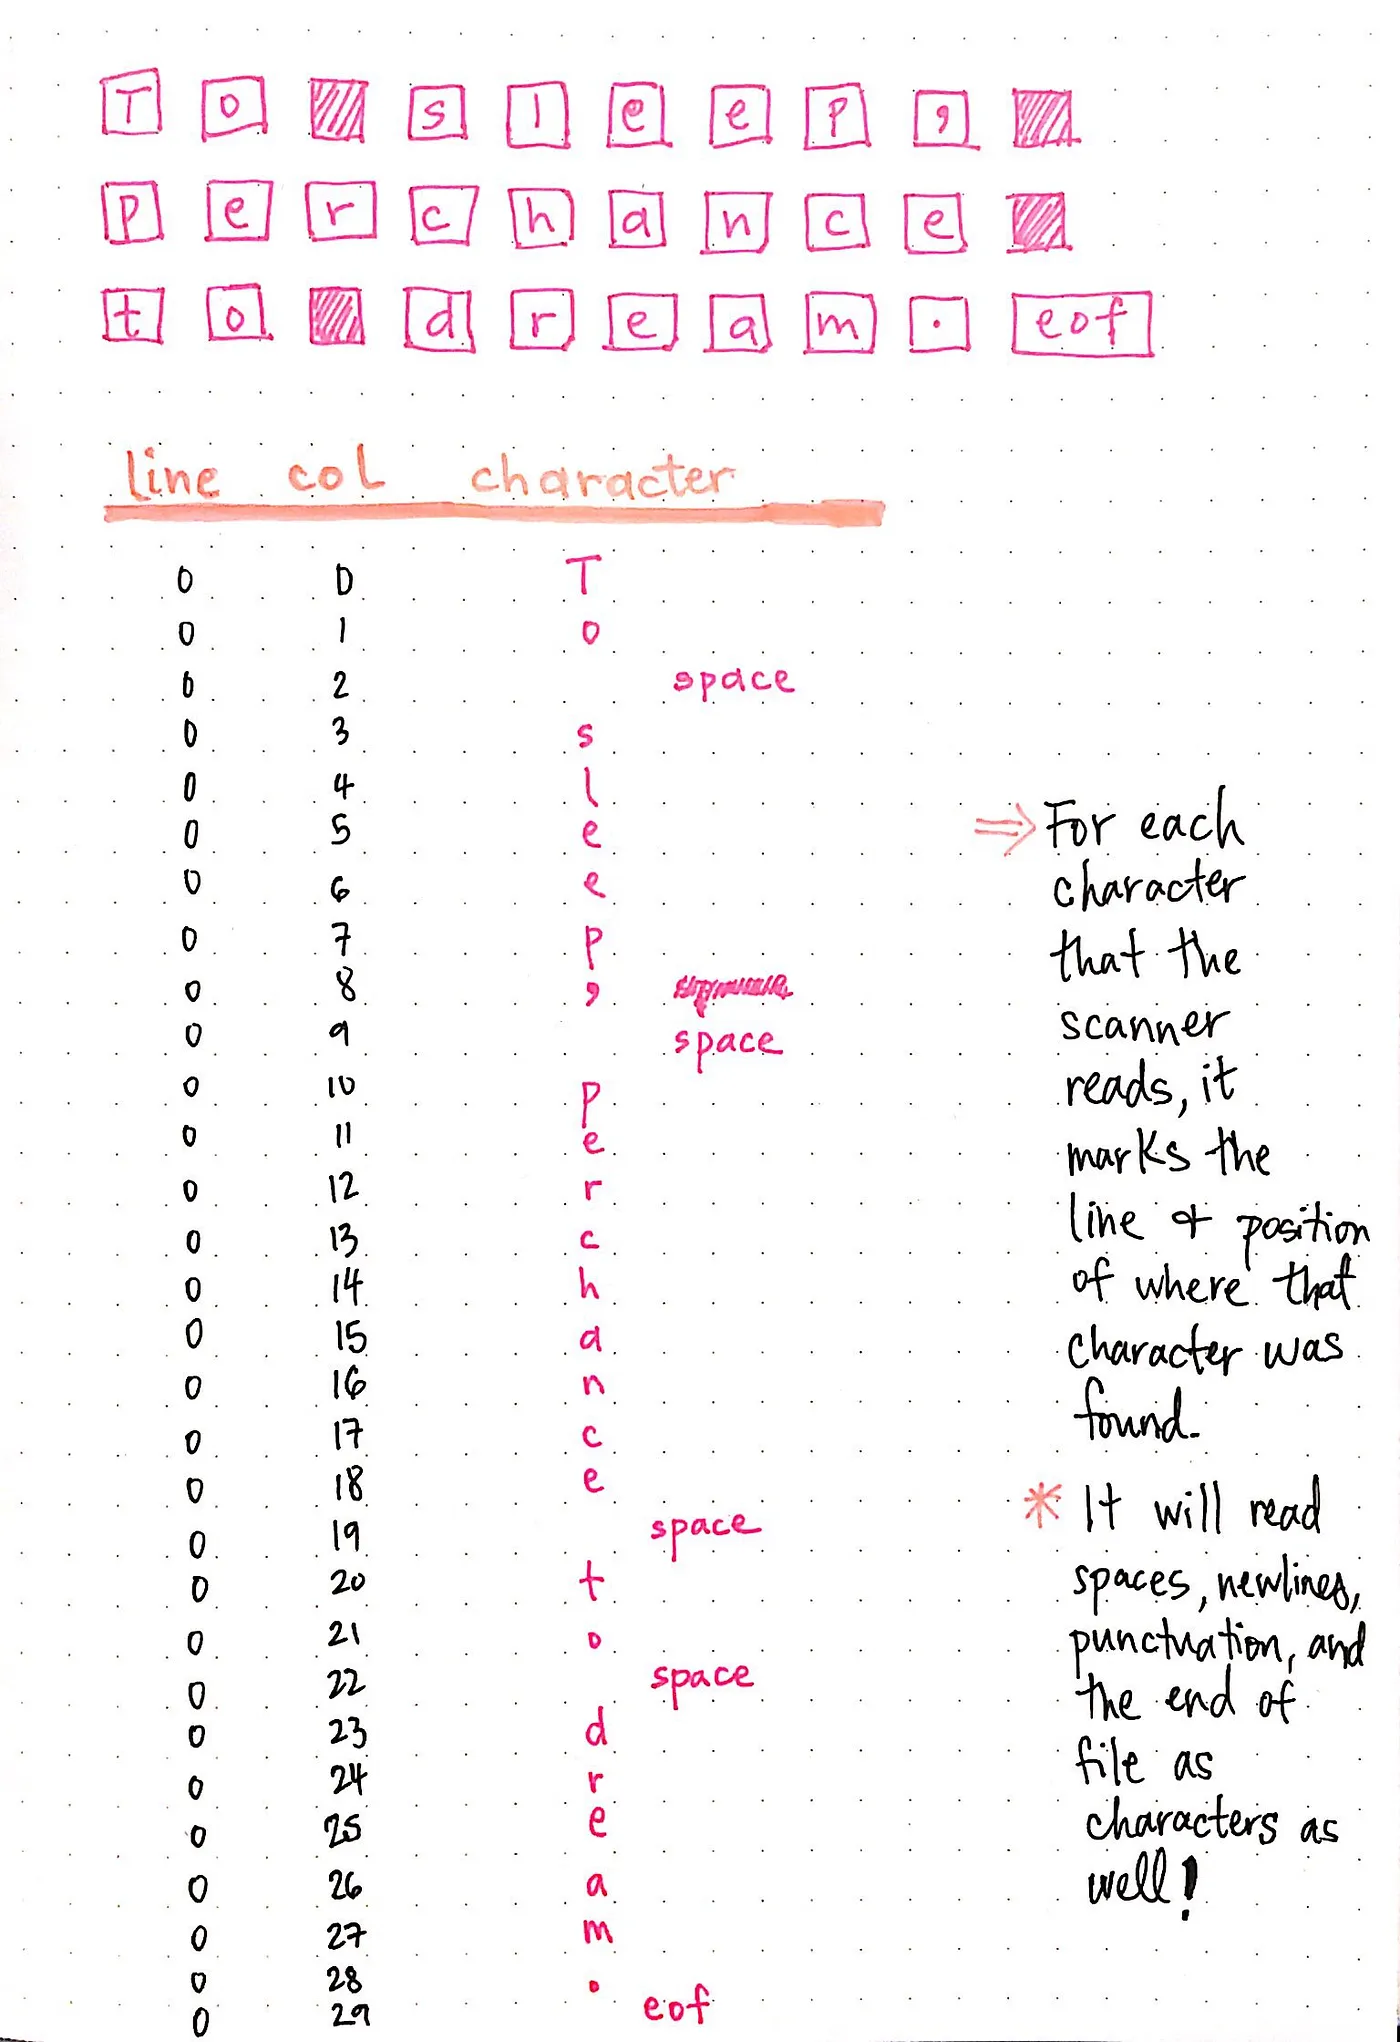 T o s l e e p ,
p e r c h a n c e
t o d r e a m . eof
line col character
0 0 T
0 1 o
0 2 space
0 3 s
0 4 l
0 5 e
0 6 e
0 7 p
0 8 ,
0 9 space
0 10 p
0 11 e
0 12 r
0 13 c
0 14 h
0 15 a
0 16 n
0 17 c
0 18 e
0 19 space
0 20 t
0 21 o
0 22 space
0 23 d
0 24 r
0 25 e
0 26 a
0 27 m
0 28 .
0 29 eof
⇒ For each
character
that the
scanner
reads, it
marks the
line & position
of where that
character was
found.
* It will read
spaces, newlines,
punctuation, and
the end of
file as
characters as
well!